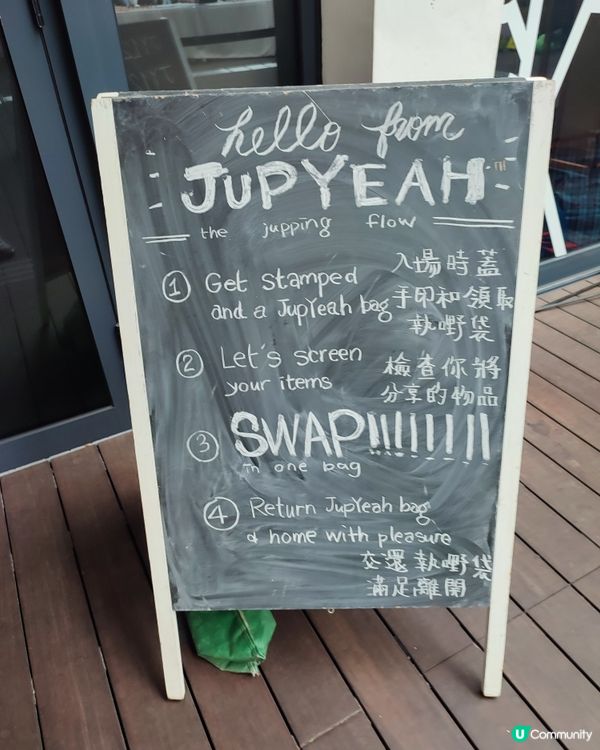 hello from
JUPYEAH
the jupping flow
① Get stamped
and a JupYeah bag
入場時蓋
手印和領取
執嘢袋
② Let's screen
your items
檢查你將
分享的物品
③ SWAP!!!!!!!!
in one bag
④ Return JupYeah bag
& home with pleasure
交還執嘢袋
滿足離開
U Community